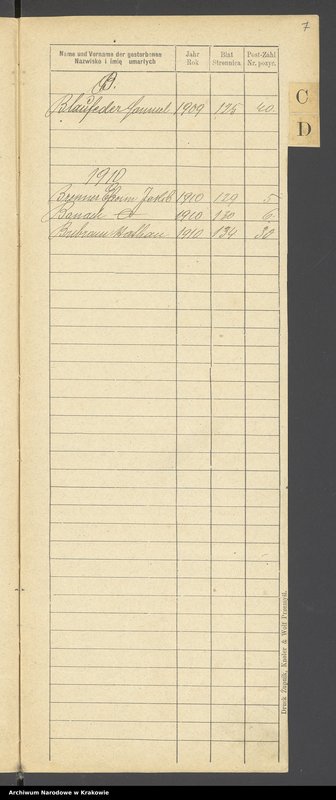 7
Name und Vorname der gestorbenen
Nazwisko i imię umarłych
Jahr
Rok
Blat
Stronnica
Post-Zahl
Nr. pozyc.
B.
C
D
Blaufeder Samuel 1909 125 40.
1910
Brenner Chaim Jakób 1910 129 5
Banach 1910 130 6
Birnbaum Nathan 1910 134 30
Druck Żupnik, Knoller & Wolf Przemyśl.
Archiwum Narodowe w Krakowie